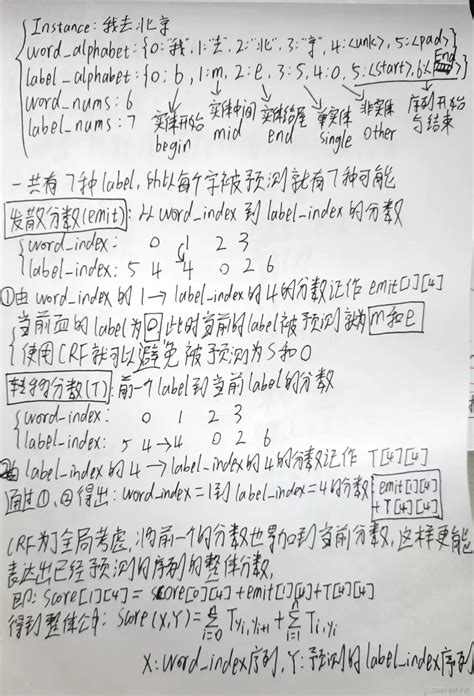 Instance: 我去北京
word_alphabet: {0:"我", 1:"去", 2:"北", 3:"京", 4:<unk>, 5:<pad>}
label_alphabet: {0:b, 1:m, 2:e, 3:s, 4:o, 5:<start>, 6:<End>}
word_nums: 6
label_nums: 7
实体开始 实体中间 实体结尾 单实体 非实体 序列开始
begin mid end single other 与结束
一共有7种label, 所以每个字被预测就有7种可能
发散分数(emit): 从word_index到label_index的分数
word_index: 0 1 2 3
label_index: 5 4 4 0 2 6
①由word_index的1→label_index的4的分数记作emit[1][4]
当前面的label为0, 此时当前的label被预测就为m和e
使用CRF就可以避免被预测为S和O
转移分数(T): 前一个label到当前label的分数
word_index: 0 1 2 3
label_index: 5 4→4 0 2 6
②由label_index的4→label_index的4的分数记作T[4][4]
通过①、②得出: word_index=1到label_index=4的分数: emit[1][4]
+T[4][4]
CRF为了全局考虑, 将前一个的分数也累加到当前分数, 这样更能
表达出已经预测的序列的整体分数,
即: Score[1][4] = score[0][4]+emit[1][4]+T[4][4]
得到整体公式: Score(X,Y)=∑ᵢ₌₀ⁿ Tyi,yi+1 + ∑ᵢ₌₁ⁿ Ti,yi
X: word_index序列, Y: 预测的label_index序列